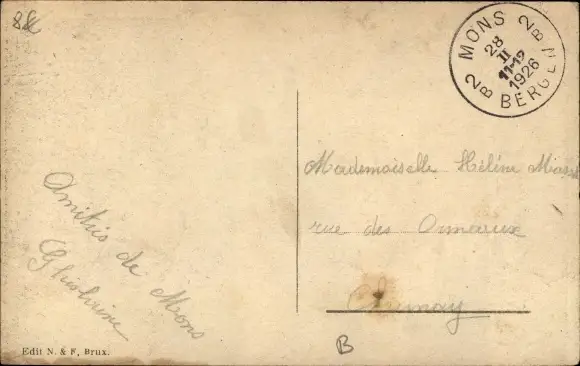 MONS 2B
28
II
11-12
1926
2B BERGEN
Amitiés de Mons
Mademoiselle Hélène
rue des Ormeaux
B
Edit N. & F, Brux.